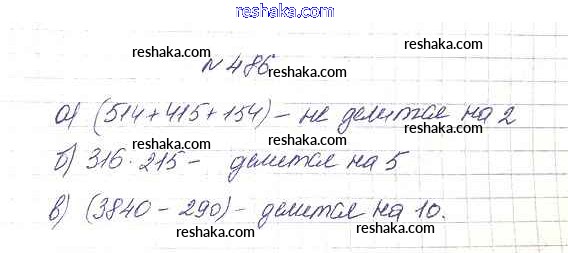 reshaka.com
№ 486
reshaka.com
reshaka.com reshaka.com
а) (514+415+154) – не делится на 2
reshaka.com
б) 316 · 215 – делится на 5
reshaka.com reshaka.com
в) (3840 – 290) – делится на 10.
reshaka.com